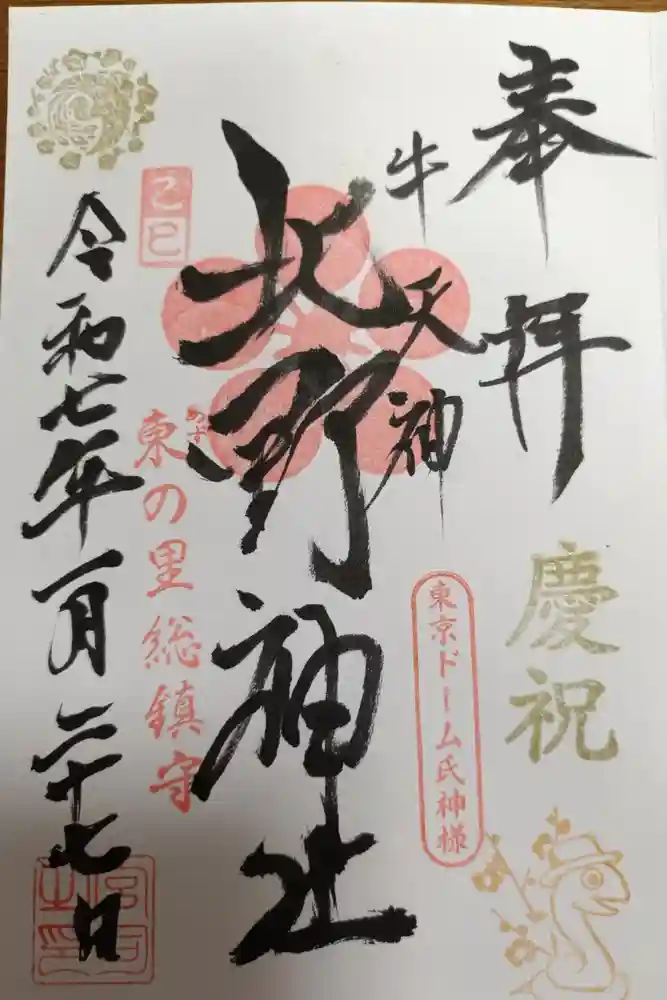 奉拝
慶祝
牛天神
東京ドーム氏神様
北野神社
己巳
東の里総鎮守
令和七年一月二十七日